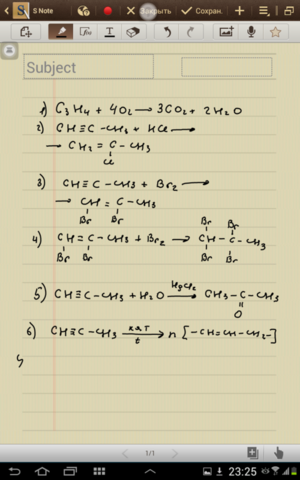 S Note
Закрыть
Сохран.
Subject
1) C3H4 + 4O2 → 3CO2 + 2H2O
2) CH≡C–CH3 + HCl →
→ CH2=C–CH3
Cl
3) CH≡C–CH3 + Br2 →
→ CH=C–CH3
Br Br
Br Br
4) CH=C–CH3 + Br2 → CH–C–CH3
Br Br Br Br
5) CH≡C–CH3 + H2O –HgCl2→ CH3–C–CH3
O
6) CH≡C–CH3 –кат t→ n [–CH=CH–CH2–]
1/1
23:25